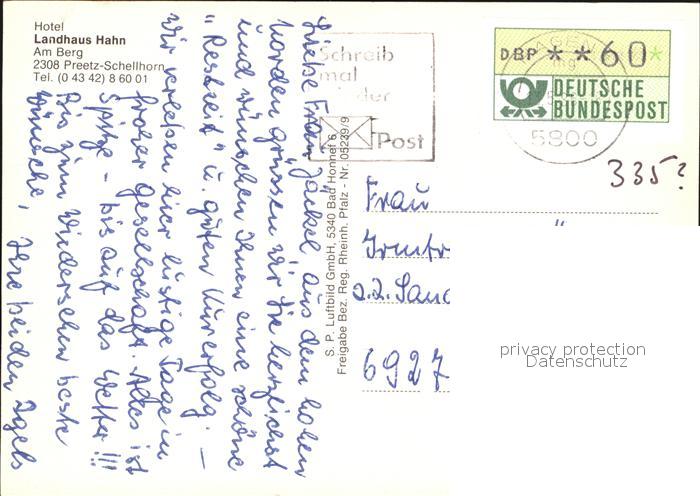 Hotel
Landhaus Hahn
Am Berg
2308 Preetz-Schellhorn
Tel. (0 43 42) 8 60 01
Liebe Frau Jäckel, aus dem hohen
Norden grüssen wir Sie herzlichst
und wünschen Ihnen eine schöne
"Restzeit" u. guten Kurerfolg. —
Wir verleben hier lustige Tage in
froher Gesellschaft. Alles ist
Spitze - bis auf das Wetter!!!
Bis zum Wiedersehen beste
Wünsche, Ihre beiden Igels
S. P. Luftbild GmbH, 5340 Bad Honnef 6,
Freigabe Bez. Reg. Rheinh. Pfalz - Nr. 05239/9
Schreib
mal
Post
DBP **60*
DEUTSCHE
BUNDESPOST
5800
335?
Frau
Irmtr
z.Z. Sana
6927
privacy protection
Datenschutz